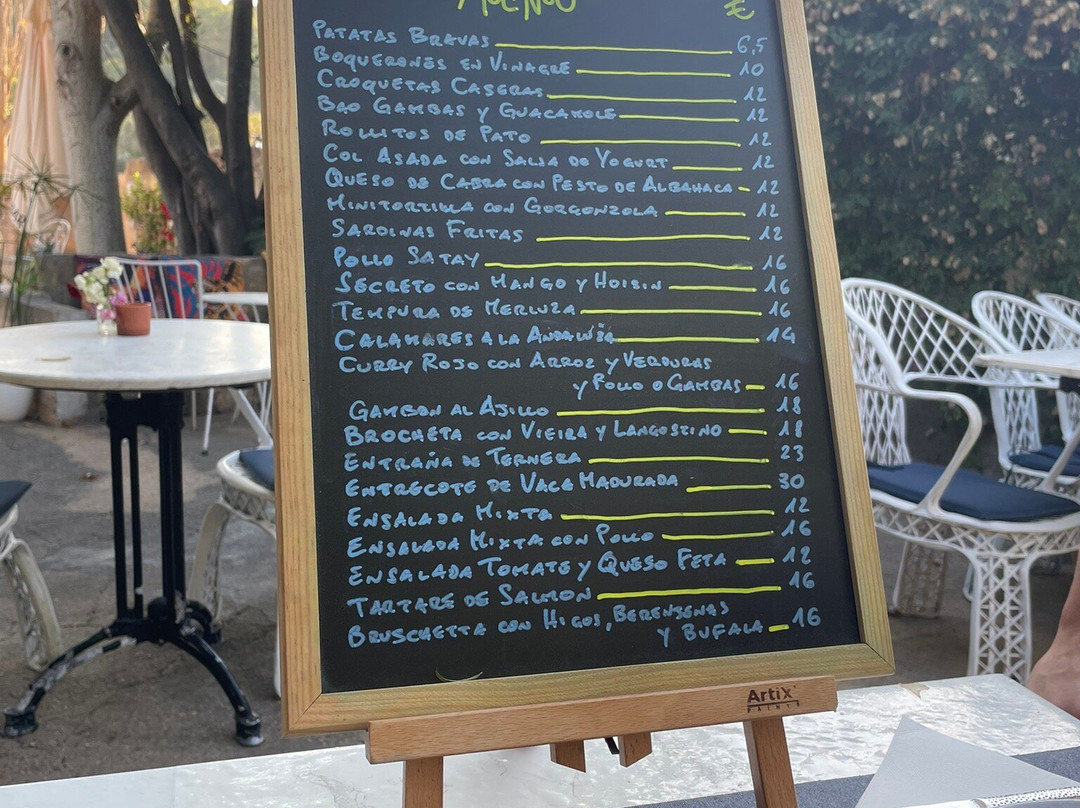 €
PATATAS BRAVAS 6,5
BOQUERONES EN VINAGRE 10
CROQUETAS CASERAS 12
BAO GAMBAS Y GUACAMOLE 12
ROLLITOS DE PATO 12
COL ASADA CON SALSA DE YOGURT 12
QUESO DE CABRA CON PESTO DE ALBAHACA 12
MINITORTILLA CON GORGONZOLA 12
SARDINAS FRITAS 12
POLLO SATAY 16
SECRETO CON MANGO Y HOISIN 16
TEMPURA DE MERLUZA 16
CALAMARES A LA ANDALUSIA 14
CURRY ROJO CON ARROZ Y VERDURAS
Y POLLO O GAMBAS 16
GAMBON AL AJILLO 18
BROCHETA CON VIEIRA Y LANGOSTINO 18
ENTRAÑA DE TERNERA 23
ENTRECOTE DE VACA MADURADA 30
ENSALADA MIXTA 12
ENSALADA MIXTA CON POLLO 16
ENSALADA TOMATE Y QUESO FETA 12
TARTARE DE SALMON 16
BRUSCHETTA CON HIGOS, BERENSENAS
Y BUFALA 16
Artix
PAINTS